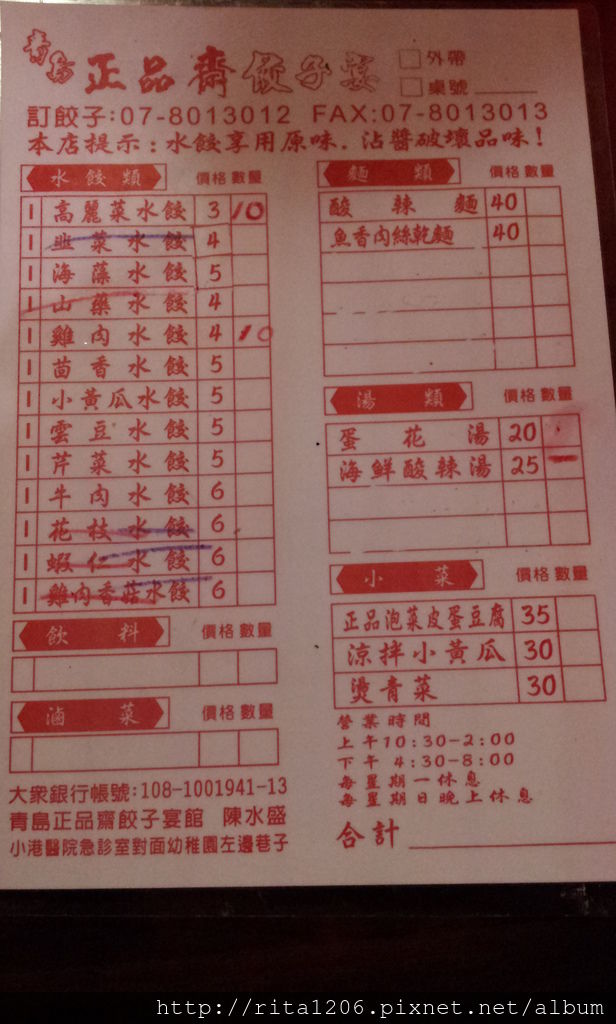 青島 正品齋餃子宴 □外帶
□桌號
訂餃子:07-8013012 FAX:07-8013013
本店提示:水餃享用原味．沾醬破壞品味!
水餃類 價格 數量
1 高麗菜水餃 3 10
1 韭菜水餃 4
1 海藻水餃 5
1 山藥水餃 4
1 雞肉水餃 4 10
1 茴香水餃 5
1 小黃瓜水餃 5
1 雲豆水餃 5
1 芹菜水餃 5
1 牛肉水餃 6
1 花枝水餃 6
1 蝦仁水餃 6
1 雞肉香菇水餃 6
飲料 價格 數量
滷菜 價格 數量
大衆銀行帳號:108-1001941-13
青島正品齋餃子宴館 陳水盛
小港醫院急診室對面幼稚園左邊巷子
麵類 價格 數量
酸辣麵 40
魚香肉絲乾麵 40
湯類 價格 數量
蛋花湯 20
海鮮酸辣湯 25
小菜 價格 數量
正品泡菜皮蛋豆腐 35
涼拌小黃瓜 30
燙青菜 30
營業時間
上午10:30-2:00
下午 4:30-8:00
每星期一休息
每星期日晚上休息
合計
http://rita1206.pixnet.net/album